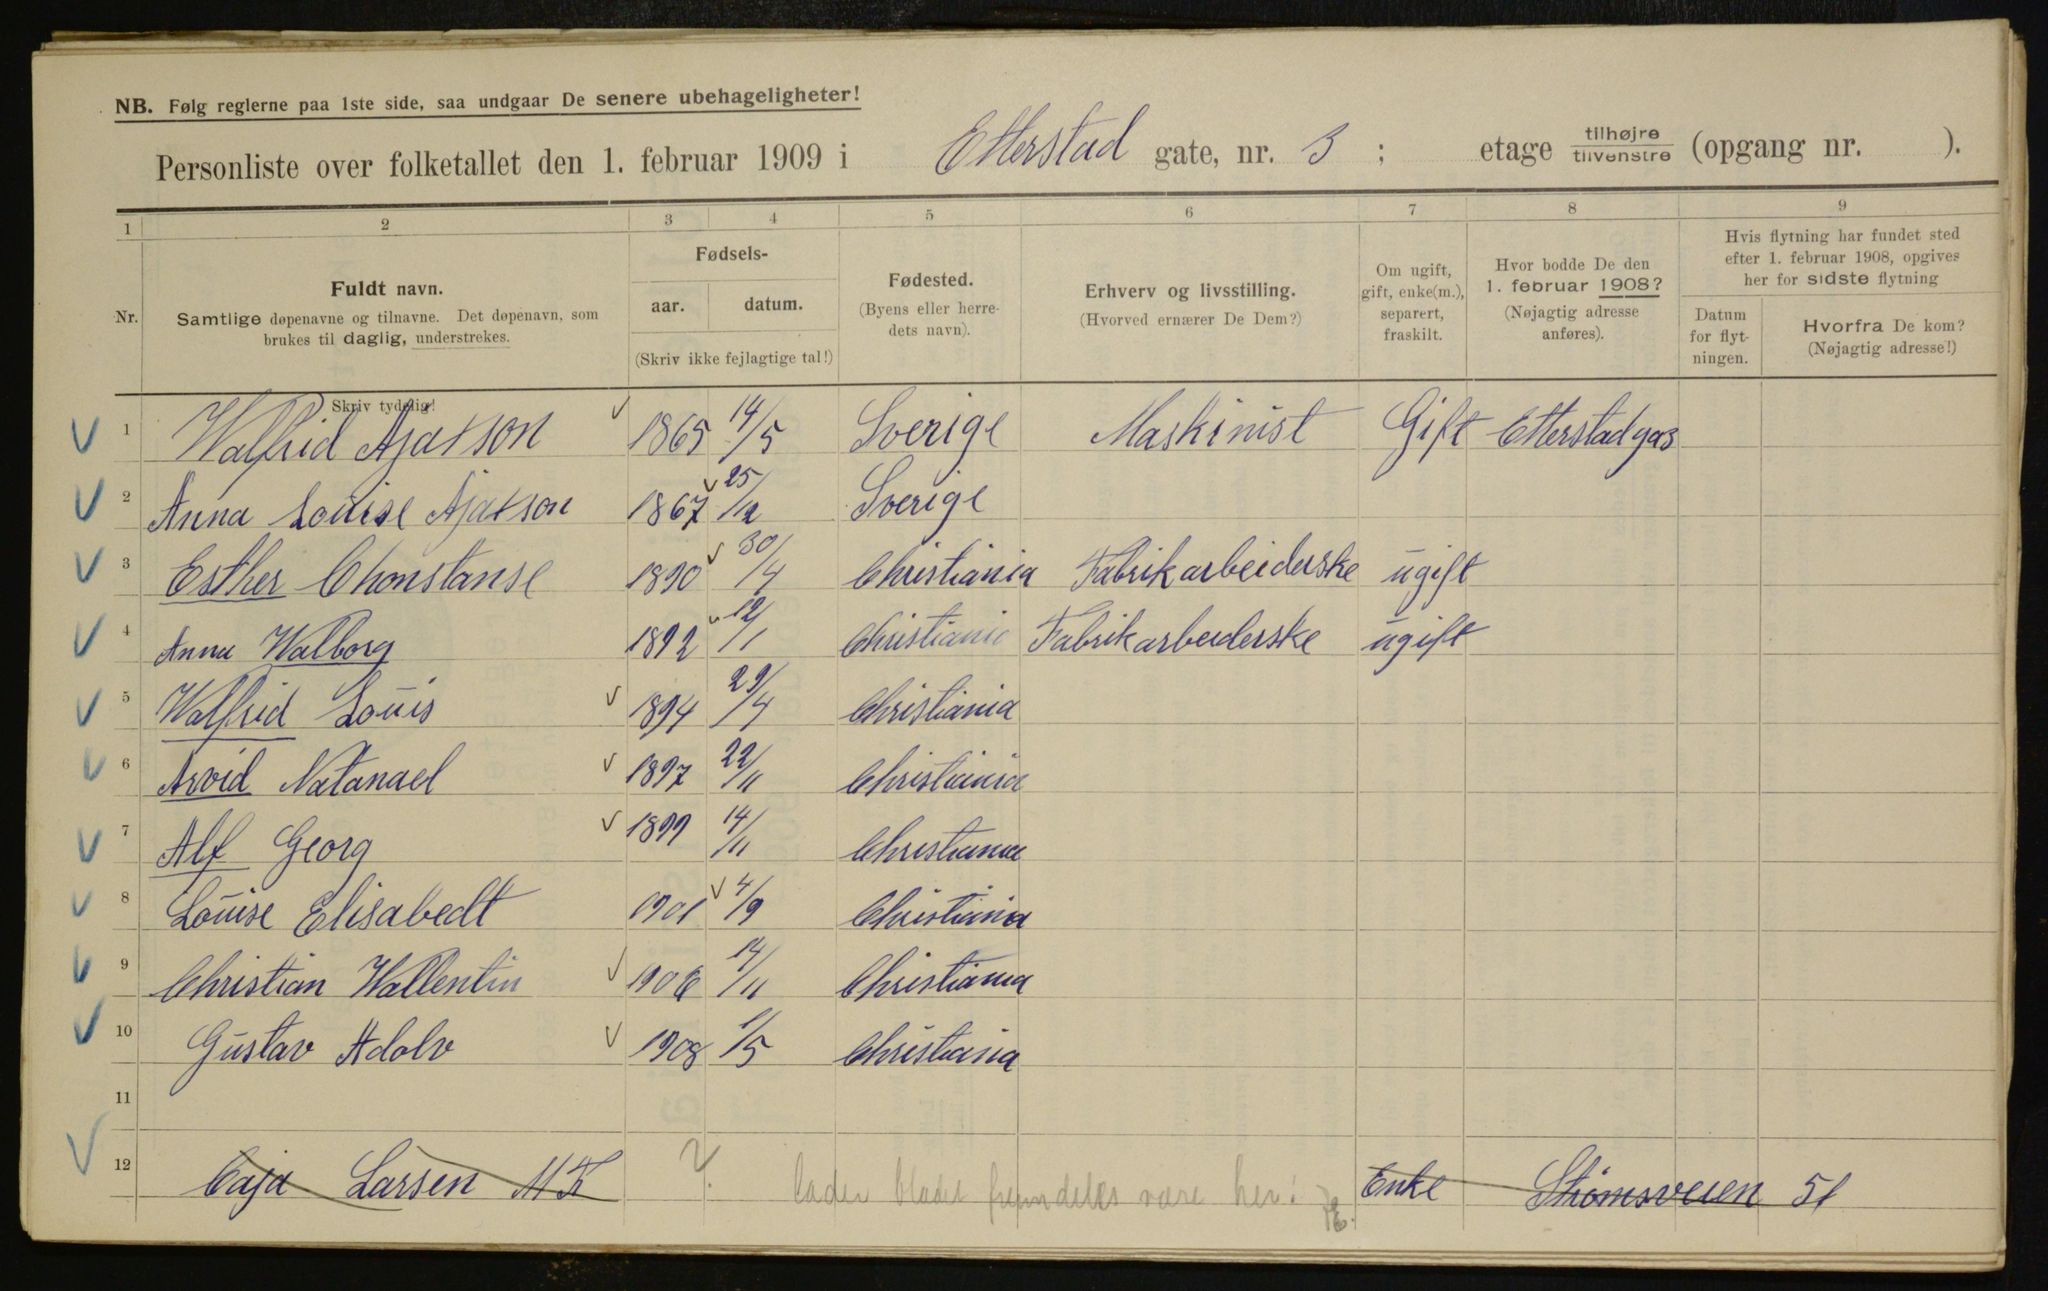 NB. Følg reglerne paa 1ste side, saa undgaar De senere ubehageligheter!
Personliste over folketallet den 1. februar 1909 i Etterstad gate, nr. 3 ; etage tilhøjre tilvenstre (opgang nr. ).
1 2 3 4 5 6 7 8 9
Nr.
Fuldt navn.
Samtlige døpenavne og tilnavne. Det døpenavn, som
brukes til daglig, understrekes.
Skriv tydelig!
Fødsels-
aar. datum.
(Skriv ikke fejlagtige tal!)
Fødested.
(Byens eller herre-
dets navn).
Erhverv og livsstilling.
(Hvorved ernærer De Dem?)
Om ugift,
gift, enke(m.),
separert,
fraskilt.
Hvor bodde De den
1. februar 1908?
(Nøjagtig adresse
anføres).
Hvis flytning har fundet sted
efter 1. februar 1908, opgives
her for sidste flytning
Datum
for flyt-
ningen.
Hvorfra De kom?
(Nøjagtig adresse!)
1 Walfrid Ajaxson 1865 14/5 Sverige Maskinist Gift Etterstadgas
2 Anna Louise Ajaxson 1867 25/12 Sverige
3 Esther Chonstanse 1890 30/4 Christiania Fabrikarbeiderske ugift
4 Anna Walborg 1892 12/1 Christiania Fabrikarbeiderske ugift
5 Walfrid Louis 1894 29/4 Christiania
6 Arvid Natanael 1897 22/11 Christiania
7 Alf Georg 1899 14/11 Christiania
8 Louise Elisabedt 1901 4/9 Christiania
9 Christian Wallentin 1906 14/11 Christiania
10 Gustav Adolv 1908 1/5 Christiania
11
12 Caja Larsen ? lader bladet fremdeles være her! Enke Strømsveien 51